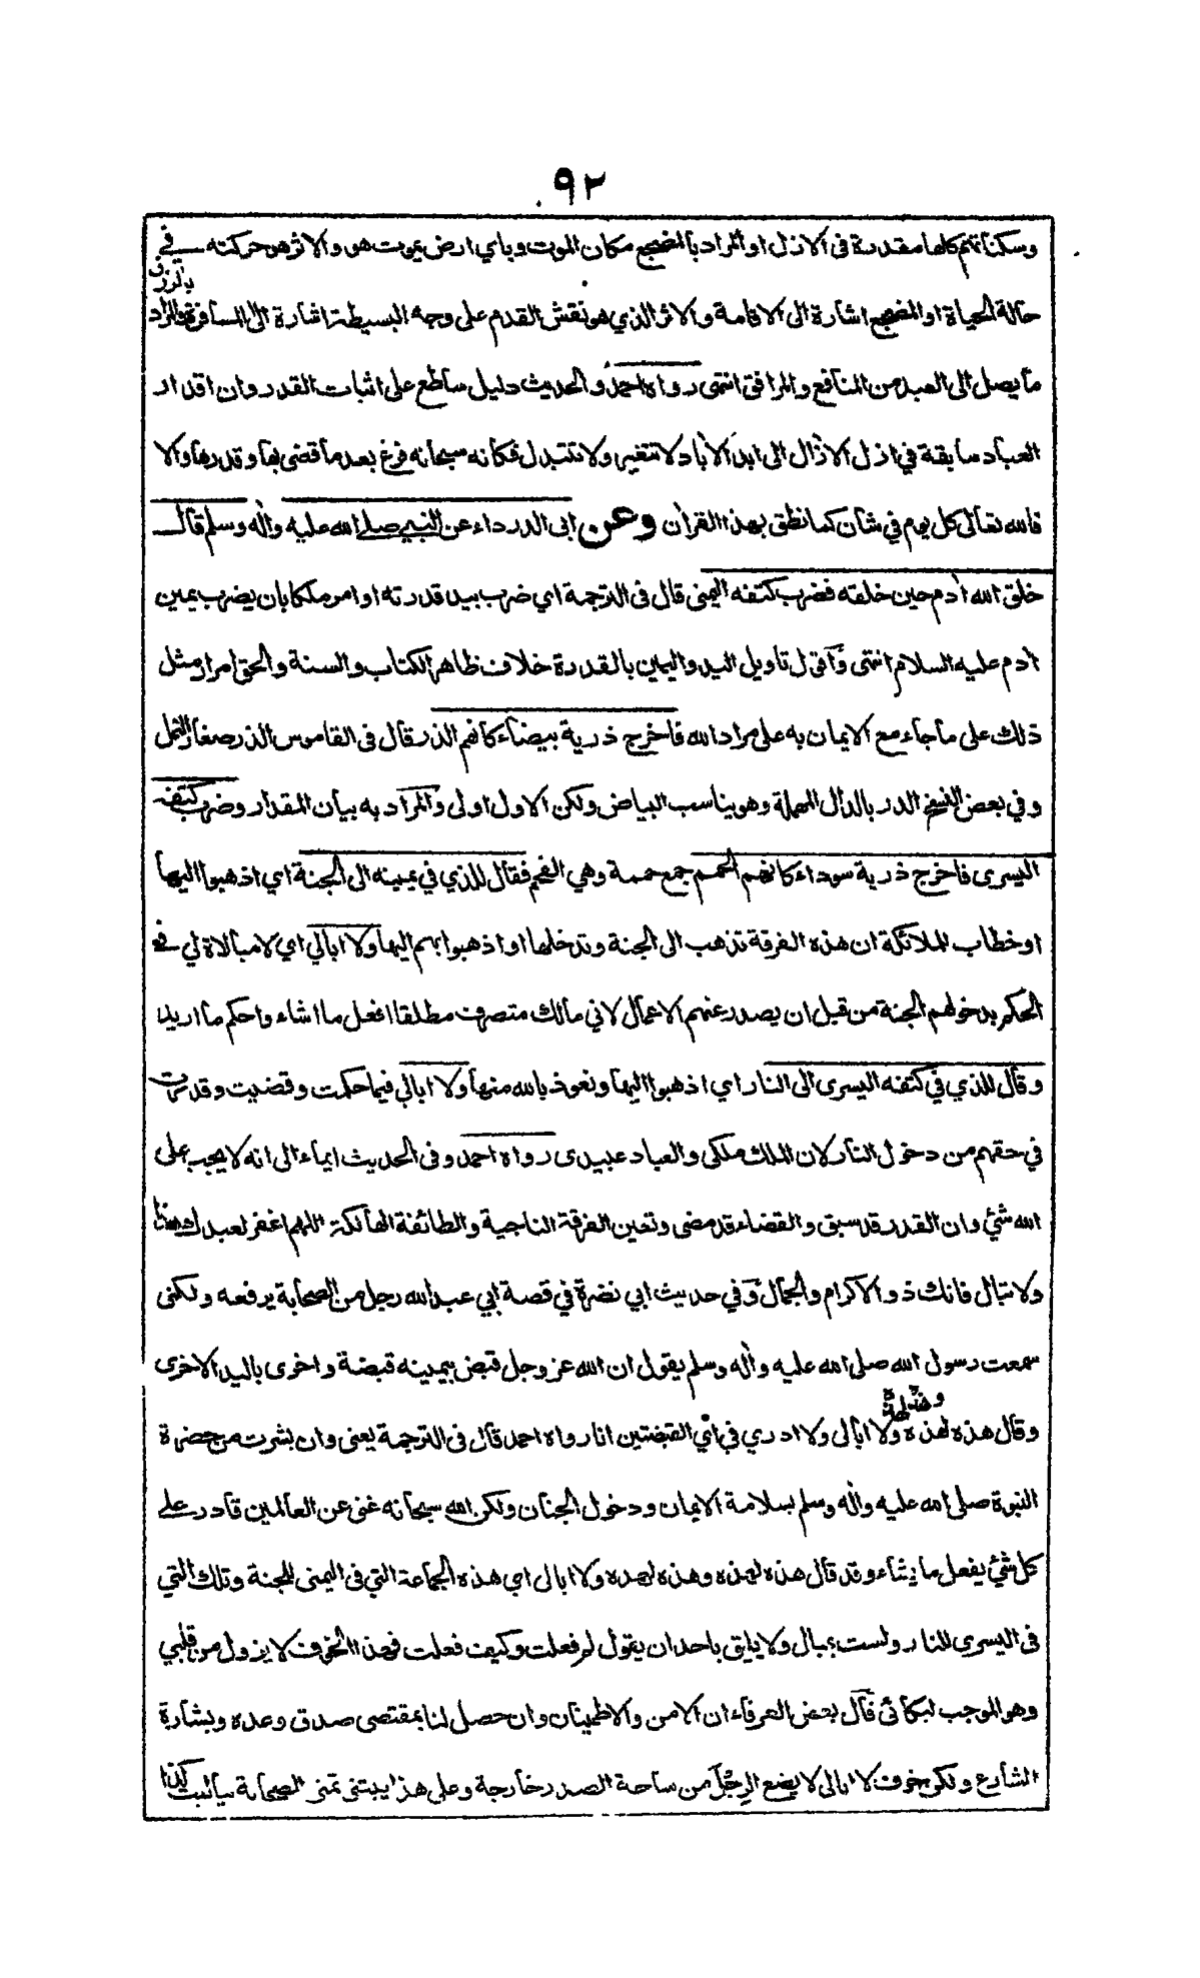 ٩٢
وسكناتهم كلها مقدرة فى الازل او المراد بالمضجع مكان الموت وباي ارض يموت هو والاثر هو حركته في
بالرزق
حالة الحياة او المضجع اشارة الى الاقامة والاثر الذي هو نقش القدم على وجه البسيطة اشارة الى المسافرة والمراد
ما يصل الى العبد من المنافع والمرافق انتهى رواه احمد والحديث دليل ساطع على اثبات القدر وان اقدار
العباد سابقة في ازل الآزال الى ابد الآباد لا تتغير ولا تتبدل فكانه سبحانه فرغ بعد ما قضى بها وقدرها والا
فالله تعالى كل يوم في شان كما نطق بهذا القران وعن ابى الدرداء عن النبي صلى الله عليه وآله وسلم قال
خلق الله آدم حين خلقه فضرب كتفه اليمنى قال فى الترجمة اي ضرب بيد قدرته او امر ملكا بان يضرب يمين
آدم عليه السلام انتهى وأقول تاويل اليد واليمين بالقدرة خلاف ظاهر الكتاب والسنة والحق امرار مثل
ذلك على ما جاء مع الايمان به على مراد الله فاخرج ذرية بيضاء كانهم الذر قال فى القاموس الذر صغار النمل
وفي بعض النسخ الدر بالدال المهملة وهو يناسب البياض ولكن الاول اولى والمراد به بيان المقدار وضرب كتفه
اليسرى فاخرج ذرية سوداء كانهم الحمم جمع حممة وهي الفحم فقال للذي في يمينه الى الجنة اي اذهبوا اليها
او خطاب للملائكة ان هذه الفرقة تذهب الى الجنة وتدخلها او اذهبوا بهم اليها ولا ابالي اي لا مبالاة لي في
الحكم بدخولهم الجنة من قبل ان يصدر عنهم الاعمال لاني مالك متصرف مطلقا افعل ما اشاء واحكم ما اريد
وقال للذي في كتفه اليسرى الى النار اي اذهبوا اليها ونعوذ بالله منها ولا ابالي فيما حكمت وقضيت وقدرت
في حقهم من دخول النار لان الملك ملكى والعباد عبيدى رواه احمد وفى الحديث ايماء الى انه لا يجب على
الله شئ وان القدر قد سبق والقضاء قد مضى وتعين الفرقة الناجية والطائفة الهالكة اللهم اغفر لعبدك هذا
ولا تبال فانك ذو الاكرام والجمال وفي حديث ابي نضرة في قصة ابي عبد الله رجل من الصحابة يرفعه ولكنى
سمعت رسول الله صلى الله عليه وآله وسلم يقول ان الله عز وجل قبض بيمينه قبضة واخرى باليد الاخرى
وهذه لهذه
وقال هذه لهذه ولا ابالى ولا ادري في أي القبضتين انا رواه احمد قال فى الترجمة يعنى وان بشرت من حضرة
النبوة صلى الله عليه وآله وسلم بسلامة الايمان ودخول الجنان ولكن الله سبحانه غنى عن العالمين قادر على
كل شئ يفعل ما يشاء وقد قال هذه لهذه وهذه لهذه ولا ابالى اي هذه الجماعة التي فى اليمنى للجنة وتلك التي
فى اليسرى للنار ولست ببال ولا يليق باحد ان يقول لم فعلت وكيف فعلت فهذا الخوف لا يزول من قلبي
وهو الموجب لبكائى قال بعض العرفاء ان الامن والاطمينان وان حصل لنا بمقتضى صدق وعده وبشارة
الشارع ولكن خوف لا ابالى لا يضع الرجل من ساحة الصدر خارجة وعلى هذا يبتنى تمنى الصحابة يا ليت كذا